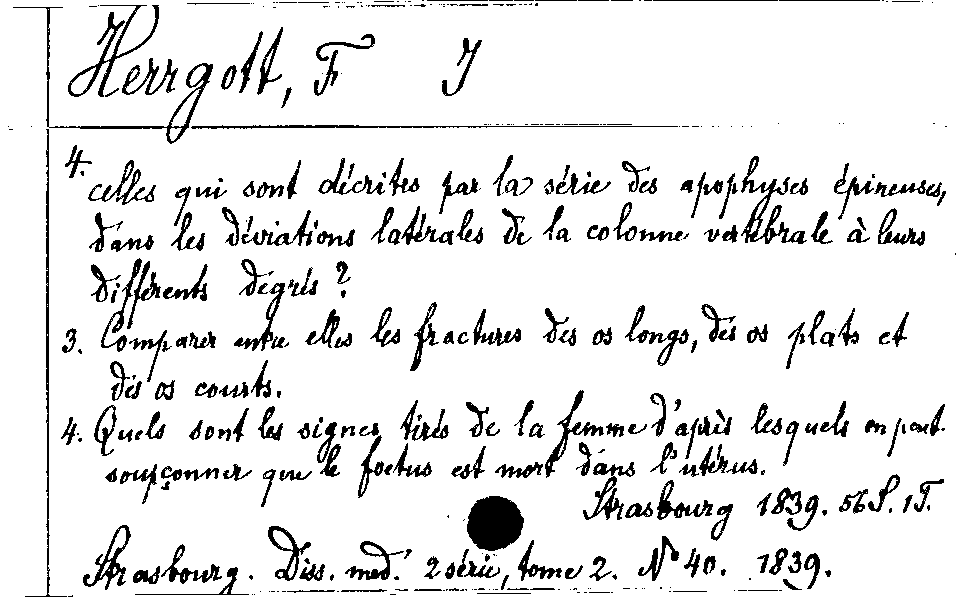 Herrgott, F J
4.
celles qui sont décrites par la série des apophyses épineuses,
dans les déviations latérales de la colonne vertébrale à leurs
différents degrés?
3. Comparer entre elles les fractures des os longs, des os plats et
des os courts.
4. Quels sont les signes tirés de la femme d'après lesquels on peut
soupçonner que le foetus est mort dans l'utérus.
Strasbourg 1839. 56 S. 1 T.
Strasbourg. Diss. med. 2 série, tome 2. No 40. 1839.